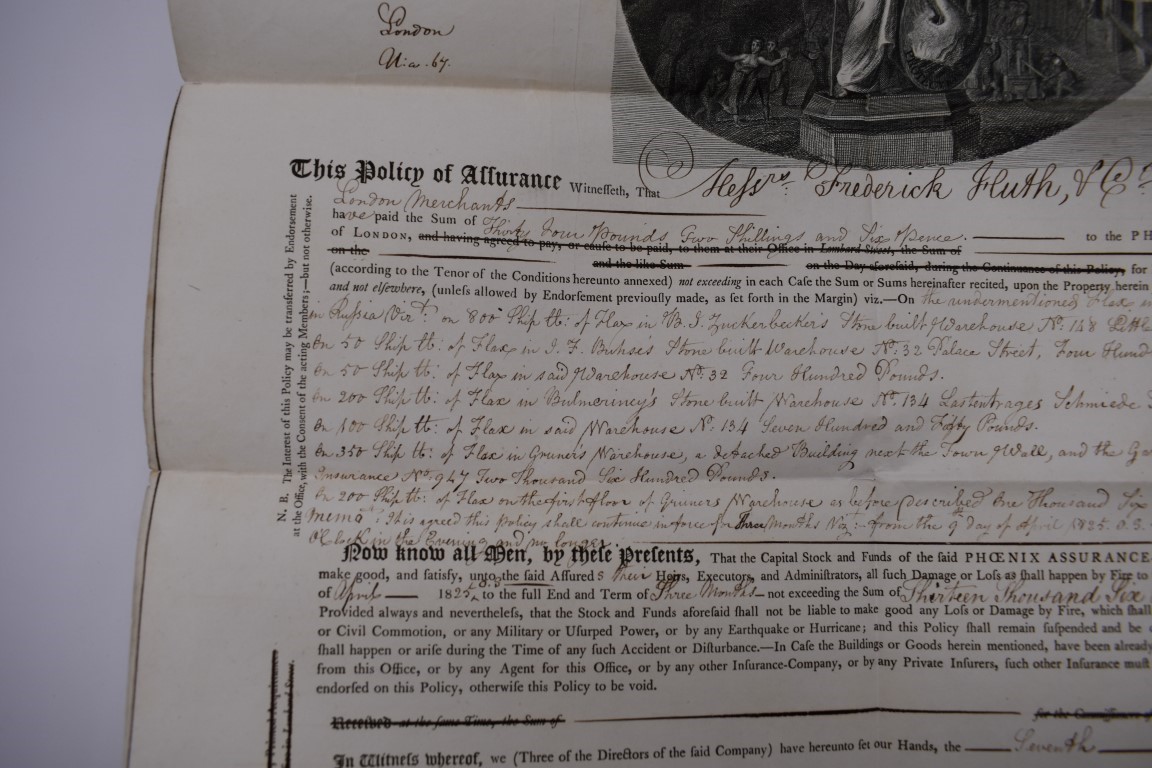 London
This Policy of Aſſurance Witneſſeth, That Meſsrs. Frederick Huth, & Co.
London Merchants
have paid the Sum of Thirty Four Pounds Two Shillings and Six Pence. to the PH
of LONDON, and having agreed to pay, or cauſe to be paid, to them at their Office in Lombard Street, the Sum of
on the and the like Sum on the Day aforeſaid, during the Continuance of this Policy, for
(according to the Tenor of the Conditions hereunto annexed) not exceeding in each Caſe the Sum or Sums hereinafter recited, upon the Property herein
and not elſewhere, (unleſs allowed by Endorſement previouſly made, as ſet forth in the Margin) viz.—On the undermentioned Flax in
in Ruſsia Vizt. on 800 Ship lb: of Flax in B. J. Zuckerbecker's Stone built Warehouse No. 148 Little
On 50 Ship lb: of Flax in J. F. Buhse's Stone built Warehouse No. 32 Palace Street, Four Hund
On 50 Ship lb: of Flax in said Warehouse No. 32 Four Hundred Pounds.
On 200 Ship lb: of Flax in Bulmerincy's Stone built Warehouse No. 134 Lastentrages Schmiede
On 100 Ship lb: of Flax in said Warehouse No. 134 Seven Hundred and Fifty Pounds.
On 350 Ship lb: of Flax in Gruner's Warehouse, a detached Building next the Town Wall, and the Ga
Insurance No. 947 Two Thousand Six Hundred Pounds.
On 200 Ship lb: of Flax on the first floor of Gruners Warehouse as before described One Thousand Six
Memo. This agreed this Policy shall continue in force for Three Months Viz:- from the 9 day of April 1825. O.S.
O'Clock in the Evening and no longer
N. B. The Intereſt of this Policy may be transferred by Endorſement
at the Office, with the Conſent of the acting Members;—but not otherwiſe.
Now know all Men, by theſe Preſents, That the Capital Stock and Funds of the ſaid PHŒNIX ASSURANCE
make good, and ſatisfy, unto the ſaid Aſſureds their Heirs, Executors, and Adminiſtrators, all ſuch Damage or Loſs as ſhall happen by Fire to
of April 1825 to the full End and Term of Three Months not exceeding the Sum of Thirteen Thousand Six
Provided always and nevertheleſs, that the Stock and Funds aforeſaid ſhall not be liable to make good any Loſs or Damage by Fire, which ſhall
or Civil Commotion, or any Military or Uſurped Power, or by any Earthquake or Hurricane; and this Policy ſhall remain ſuſpended and be
ſhall happen or ariſe during the Time of any ſuch Accident or Diſturbance.—In Caſe the Buildings or Goods herein mentioned, have been already
from this Office, or by any Agent for this Office, or by any other Inſurance-Company, or by any Private Inſurers, ſuch other Inſurance muſt
endorſed on this Policy, otherwiſe this Policy to be void.
Received at the ſame Time, the Sum of
In Witneſs whereof, we (Three of the Directors of the ſaid Company) have hereunto ſet our Hands, the Seventh